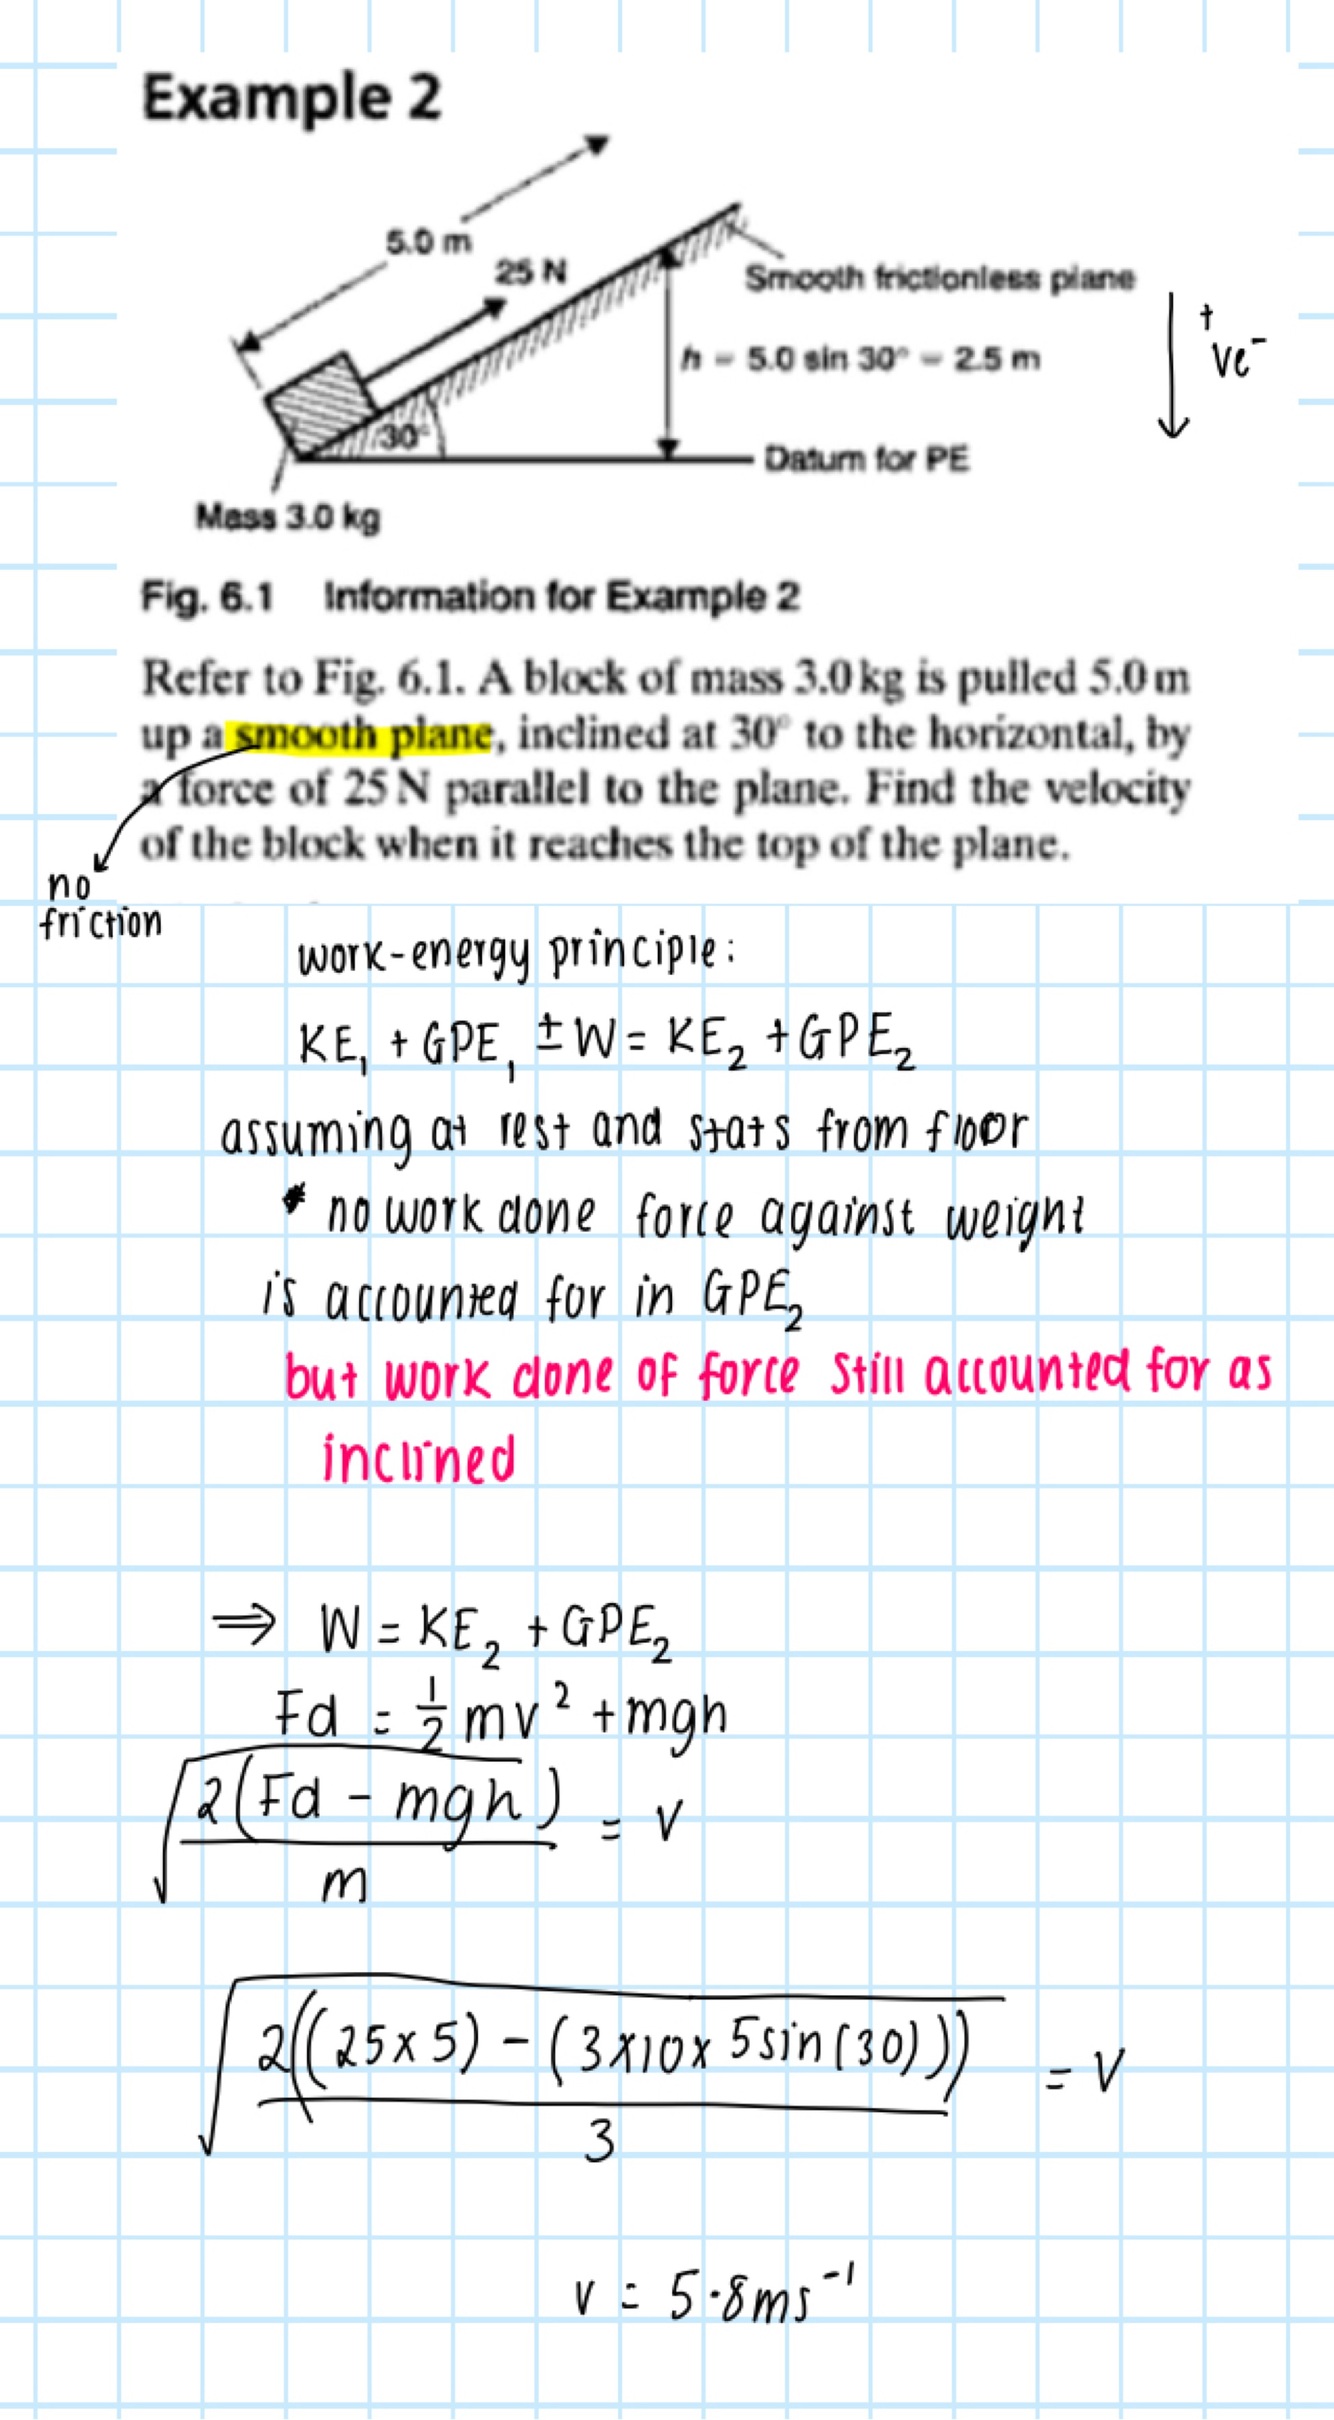 Example 2
5.0 m
25 N
Smooth frictionless plane
+
ve-
h = 5.0 sin 30° = 2.5 m
30°
Datum for PE
Mass 3.0 kg
Fig. 6.1 Information for Example 2
Refer to Fig. 6.1. A block of mass 3.0 kg is pulled 5.0 m
up a smooth plane, inclined at 30° to the horizontal, by
a force of 25 N parallel to the plane. Find the velocity
of the block when it reaches the top of the plane.
no
friction
work-energy principle:
KE₁ + GPE₁ ± W = KE₂ + GPE₂
assuming at rest and stats from floor
* no work done force against weight
is accounted for in GPE₂
but work done of force still accounted for as
inclined
⇒ W = KE₂ + GPE₂
Fd = ½ mv² + mgh
√(2(Fd - mgh) / m) = v
√(2((25 x 5) - (3 x 10 x 5 sin(30))) / 3) = v
v = 5.8ms⁻¹